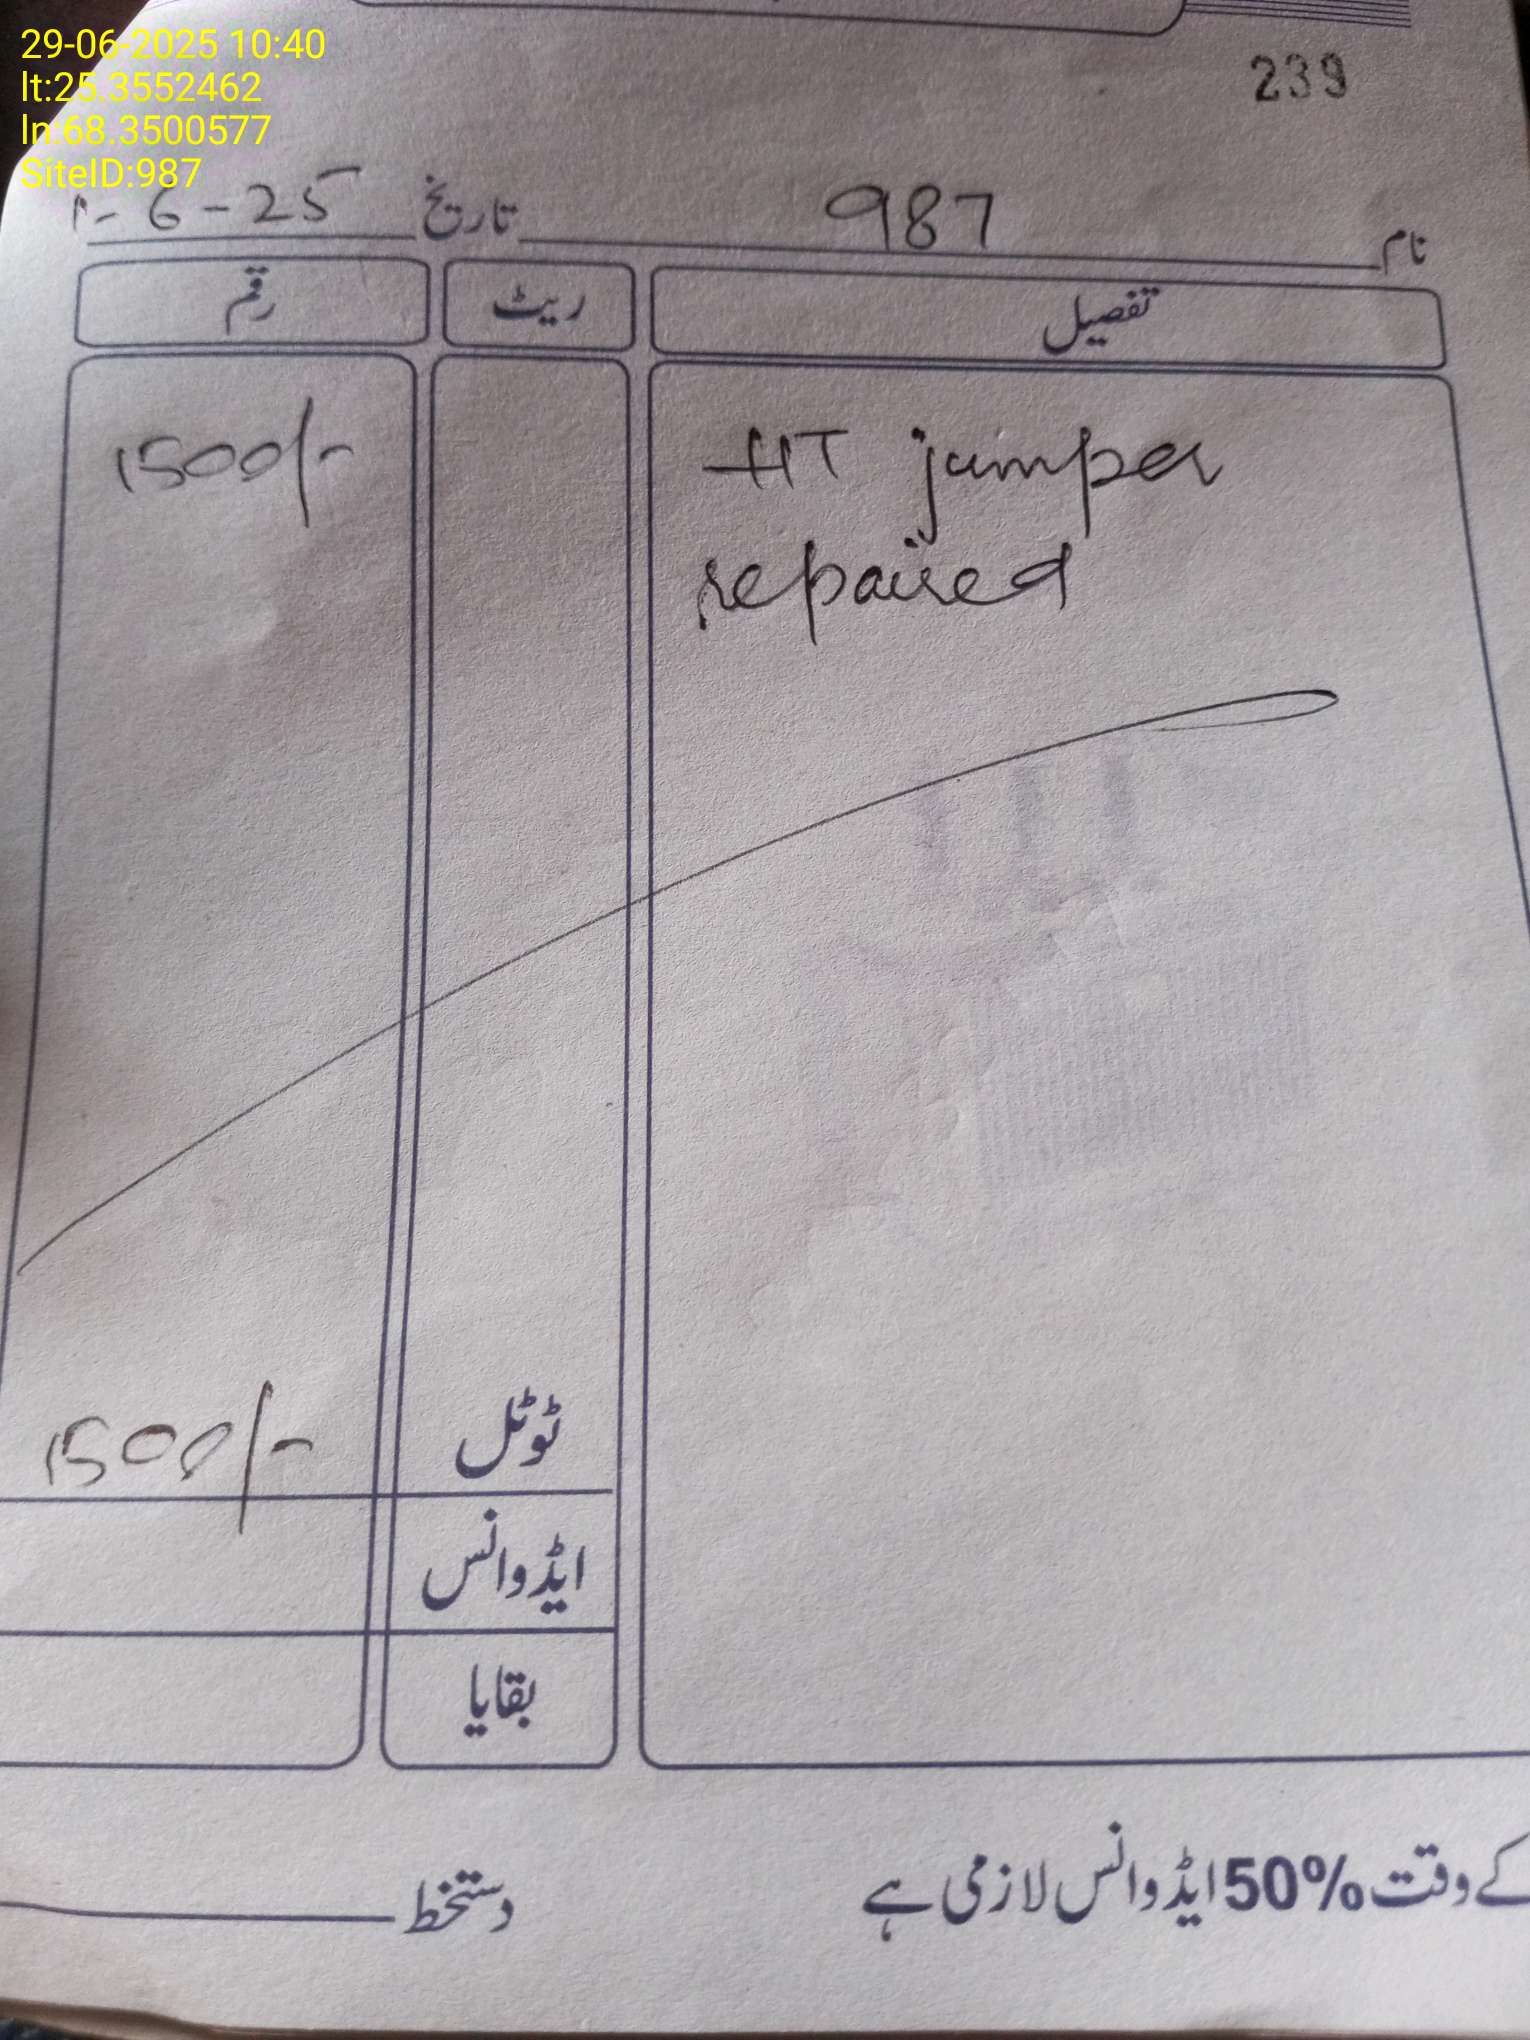 29-06-2025 10:40
lt:25.3552462
ln:68.3500577
SiteID:987
239
نام 987 تاریخ 6-25
تفصیل ریٹ رقم
HT jumper 1500/-
repaired
ٹوٹل 1500/-
ایڈوانس
بقایا
کے وقت 50% ایڈوانس لازمی ہے
دستخط